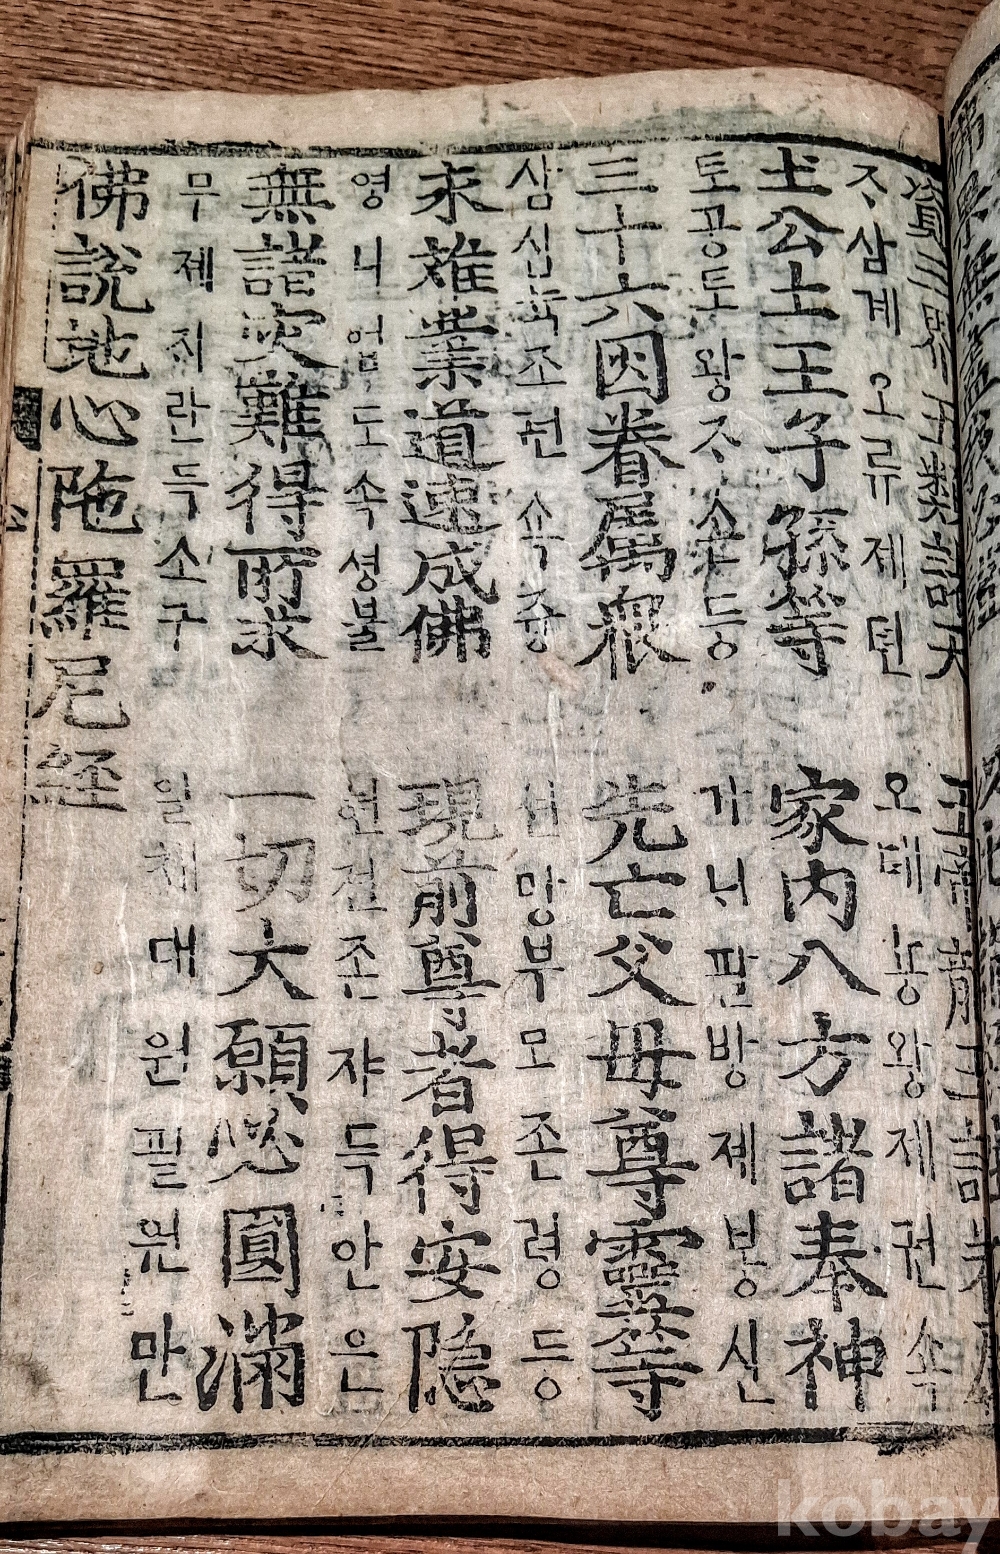 資三界五類諸天 五帝龍王諸眷属
ᄌᆞ삼계오류제텬 오데뇽왕제권쇽
土公土王子孫等 家內八方諸奉神
토공토왕ᄌᆞ손등 가ᄂᆡ팔방제봉신
三十六因眷属衆 先亡父母尊靈等
삼십뉵조권쇽즁 션망부모존령등
永離業道速成佛 現前尊者得安隱
영니업도속셩불 현젼존쟈득안은
無諸灾難得所求 一切大願必圓滿
무제ᄌᆡ란득소구 일체대원필원만
佛說地心陁羅尼経
kobay